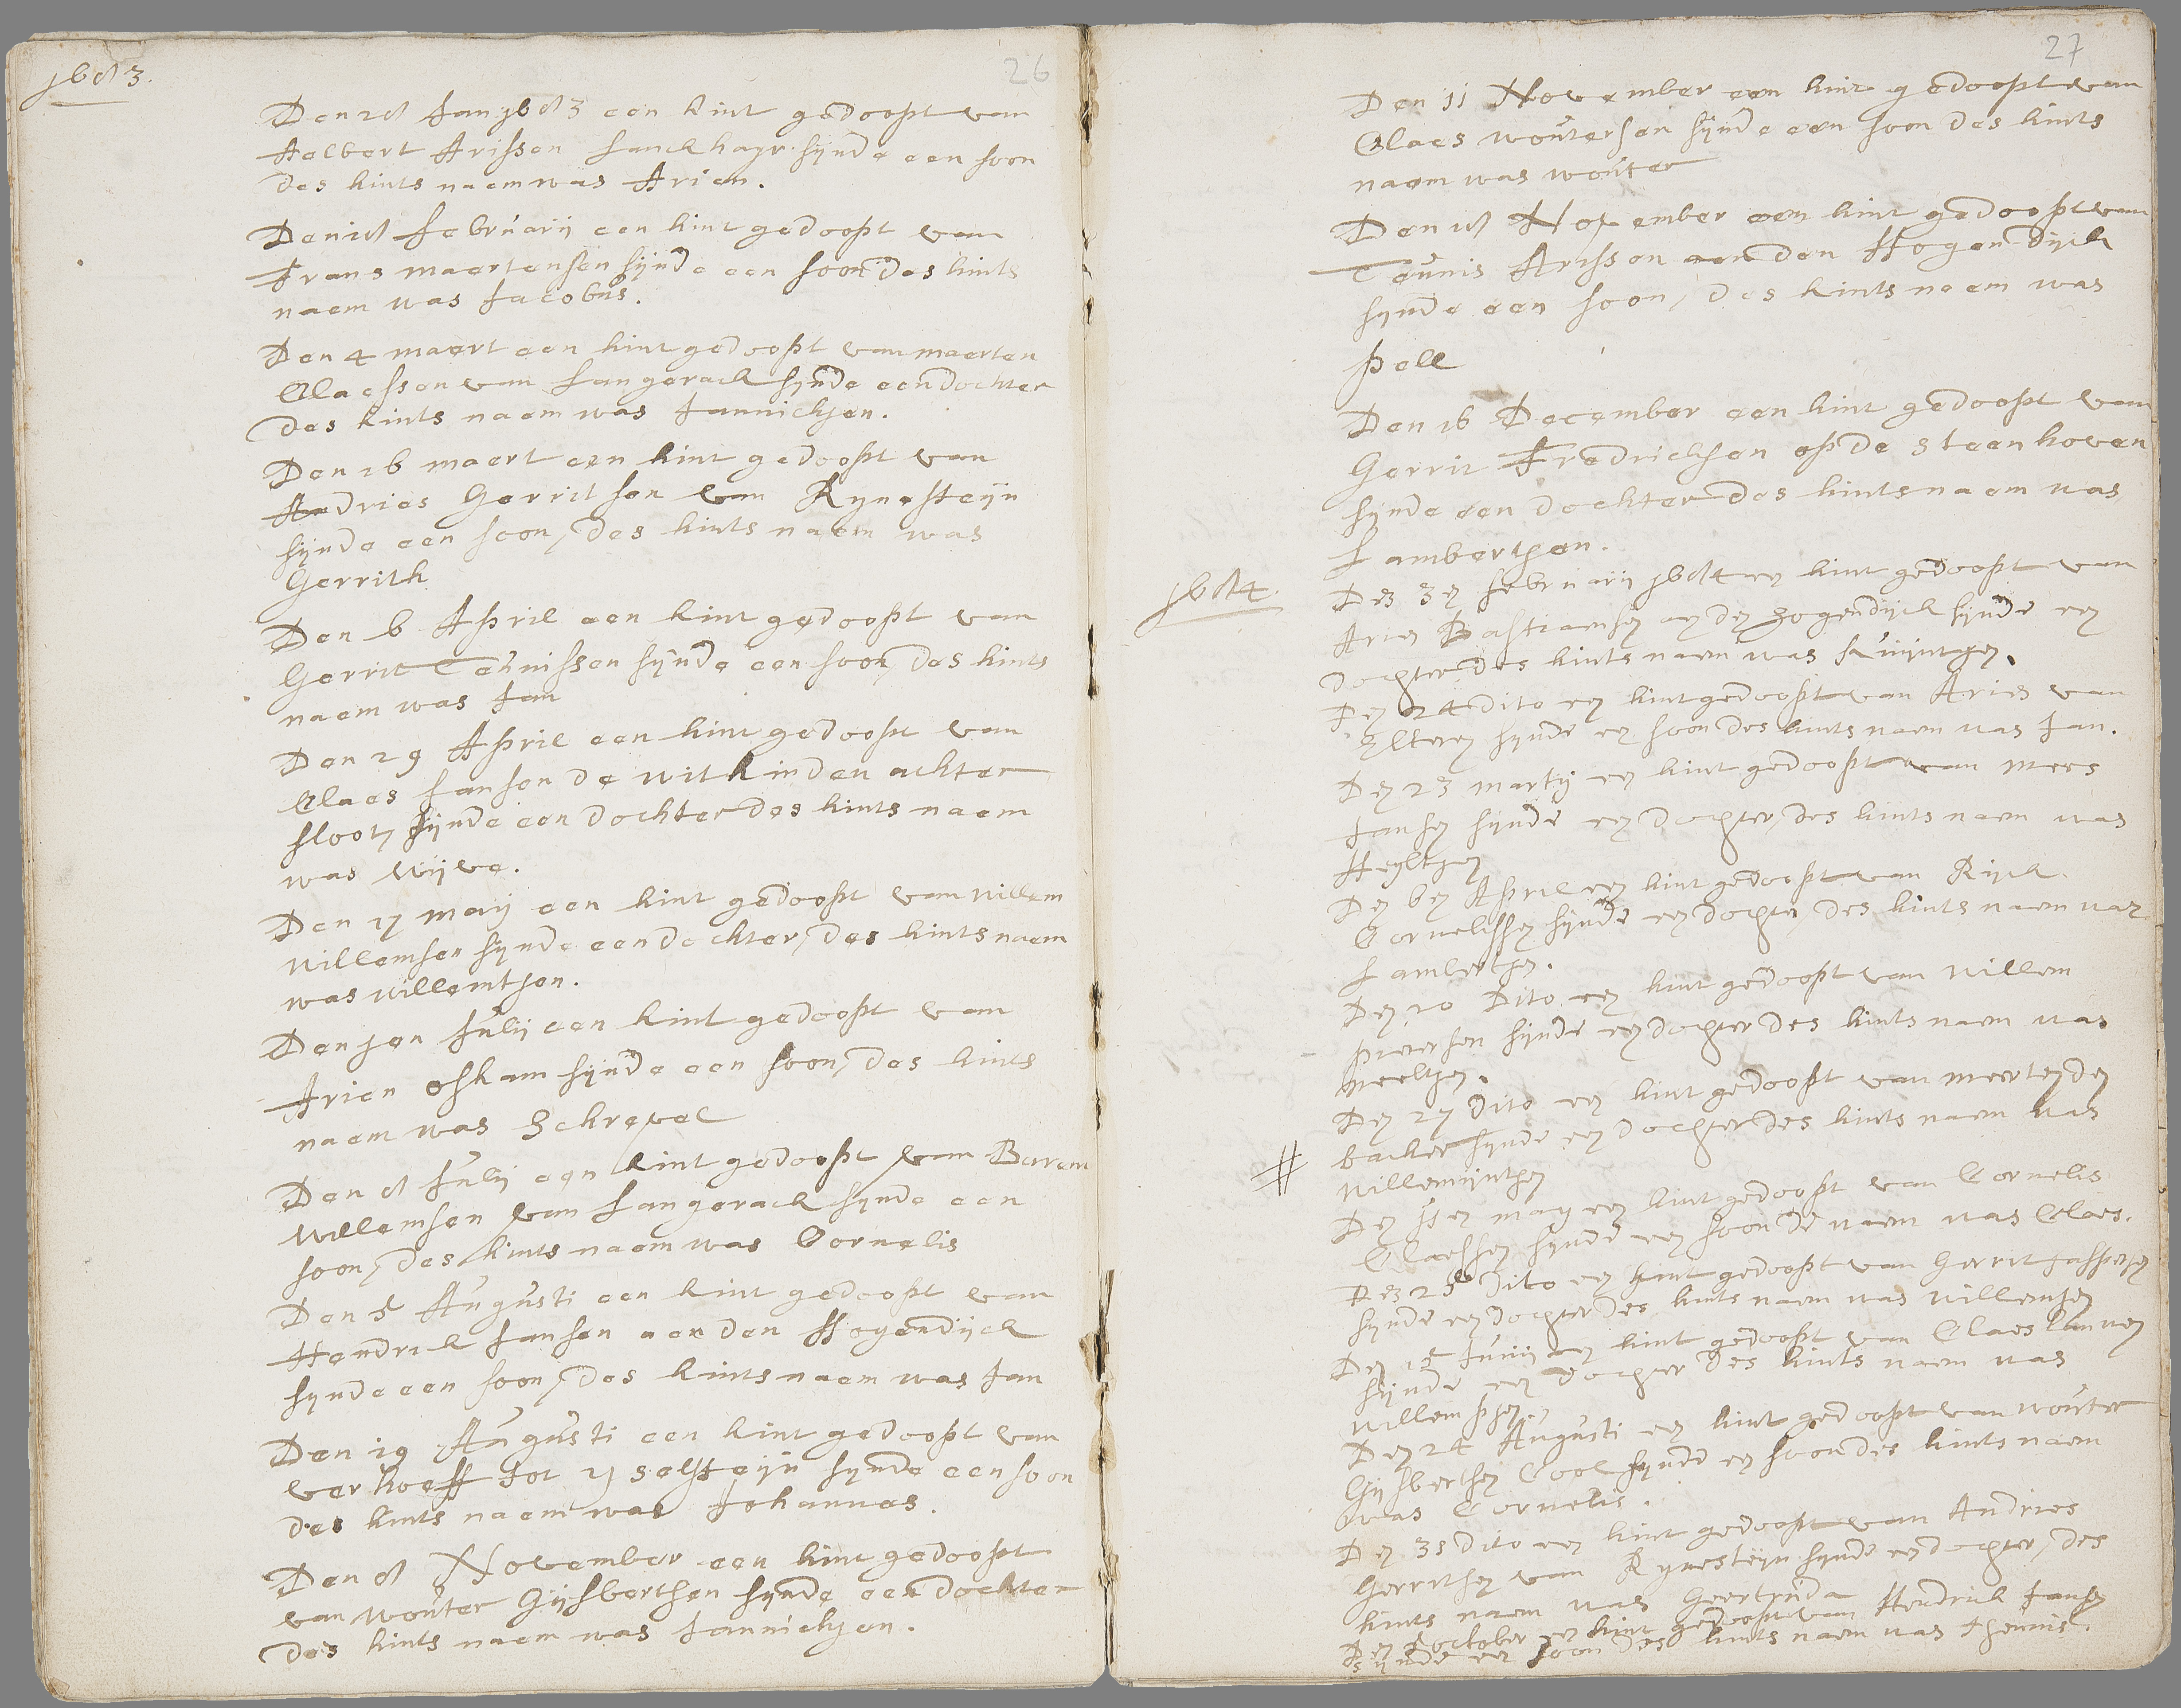 1683.
26
Den 28 Jan 1683 een kint gedoopt van
Aelbert Arissen Lanckhayr sijnde een soon
des kints naem was Arien.
Den 18 Februarij een kint gedoopt van
Frans maertensen sijnde een soon des kints
naem was Jacobus.
Den 4 maert een kint gedoopt van maerten
Claessen van Langerack sijnde een dochter
des kints naem was Jannichjen.
Den 16 maert een kint gedoopt van
Andries Gerritsen van Rynesteijn
sijnde een soon, des kints naem was
Gerrith
Den 6 April een kint gedoopt van
Gerrit Teunissen sijnde een soon, des kints
naem was Jan
Den 29 April een kint gedoopt van
Claes Jansen de wit kinden achter
sloot, sijnde een dochter des kints naem
was wijve.
Den 17 maij een kint gedoopt van willem
willemsen sijnde een dochter, des kints naem
was willemtjen.
Den jen Julij een kint gedoopt van
Arien Oskam sijnde een soon, des kints
naem was Schrevel
Den 8 Julij een kint gedoopt van Barent
willemsen van Langerack sijnde een
soon, des kints naem was Cornelis
Den 5 Augusti een kint gedoopt van
Hendrick Jansen aen den Hogendijck
sijnde een soon, des kints naem was Jan
Den 19 Augusti een kint gedoopt van
verhoeff tot ijselsteijn sijnde een soon
des kints naem was Johannes.
Den 8 November een kint gedoopt
van wouter Gijsbertsen sijnde een dochter
des kints naem was Jannichjen.
27
Den 11 November een kint gedoopt van
Claes woutersen sijnde een soon des kints
naem was wouter
Den 18 November een kint gedoopt van
Teunis Arissen aen den Hogendijck
sijnde een soon, des kints naem was
Pell
Den 16 December een kint gedoopt van
Gerrit Fredricksen op de Steenhoven
sijnde een dochter des kints naem was
Lambertjen.
1684.
Den 3en Februarij 1684 een kint gedoopt van
Arien Bastiaensen aen den hogendijck sijnde een
dochter des kints naem was Quijntgen.
Den 24 dito een kint gedoopt van Arien van
Elteren sijnde een soon des kints naem was Jan.
Den 23 martij een kint gedoopt van mees
Jansen sijnde een dochter, des kints naem was
Heyltgen
Den 6en April een kint gedoopt van Rijck
Cornelissen sijnde een dochter, des kints naem was
Lambertgen.
Den 20 Dito een kint gedoopt van willem
pietersen sijnde een dochter des kints naem was
Neeltgen.
Den 27 Dito een kint gedoopt van meerten den
backer sijnde een dochter des kints naem was
# willemijntgen
Den 11en may een kint gedoopt van Cornelis
Claessen sijnde een soon de naem was Claes.
Den 25 Dito een kint gedoopt van Gerrit Jaspersen
sijnde een dochter des kints naem was willemtgen
Den 15 Junij een kint gedoopt van Claes
sijnde een dochter des kints naem was
willemtgen
Den 24 Augusti een kint gedoopt van wouter
Gijsbertsen Cool sijnde een soon des kints naem
was Cornelis.
Den 31 dito een kint gedoopt van Andries
Gerritsen van Rynesteijn sijnde een dochter, des
kints naem was Geertruida
Den 5 october een kint gedoopt van Hendrick Jansen
sijnde een soon des kints naem was theunis.